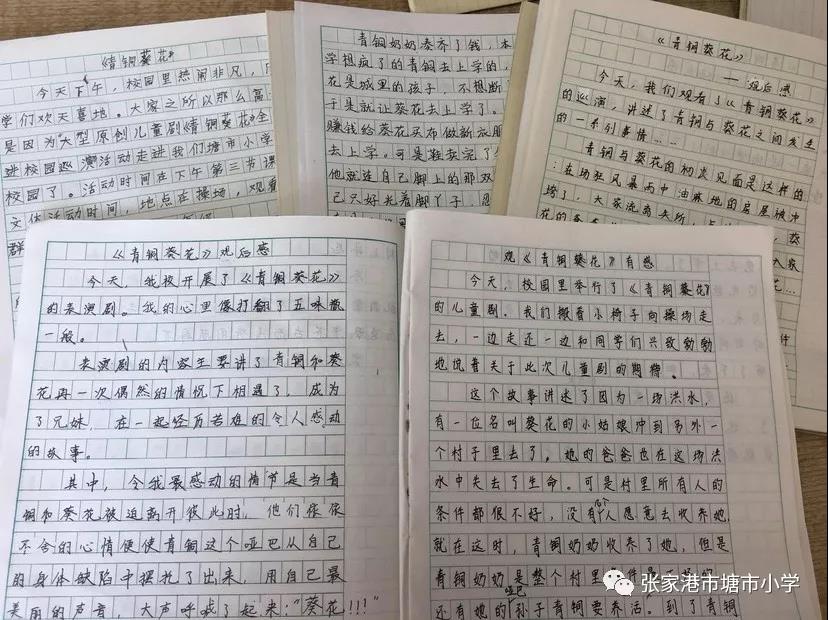 《青铜葵花》
今天下午，校园里热闹非凡，同
学们欢天喜地。大家之所以那么高
是因为"大型原创儿童剧《青铜葵花》全
进校园巡演活动走进我们塘市小学
校园了。活动时间在下午第三节课
文体活动时间，地点在操场，观看
群
青铜奶奶凑齐了钱，本
学想疯了的青铜去上学的，
花是城里的孩子，不想断
于是就让葵花去上学了。
赚钱给葵花买布做新衣服
去上学。可是鞋卖完了
他就连自己脚上的那双
己只好光着脚丫子，
《青铜葵花》
——观后感
今天，我们观看了《青铜葵花》
的演，讲述了青铜与葵花之间发生
的一系列事情…
青铜与葵花的初次见面是这样的
：在场狂风暴雨中油麻地的房屋被冲
垮了，大家流离失所，
花的
《青铜葵花》观后感
今天，我校开展了《青铜葵花》
的表演剧。我的心里像打翻了五味瓶
一般。
表演剧的内容主要讲了青铜和葵
花再一次偶然的情况下相遇了，成为
了兄妹，在一起经历苦难的令人感动
的故事。
其中，令我最感动的情节是当青
铜和葵花被迫离开彼此时，他们依依
不舍的心情便使青铜这个哑巴从自己
的身体缺陷中摆托了出来，用自己最
美丽的声音，大声呼喊了起来："葵花!!!"
观《青铜葵花》有感
今天，校园里举行了《青铜葵花》
的儿童剧。我们搬着小椅子向操场走
去，一边走还一边和同学们兴致勃勃
地说着关于此次儿童剧的期待。
这个故事讲述了因为一场洪水，
有一位名叫葵花的小姑娘冲到另外一
个村子里去了，她的爸爸也在这场洪
水中失去了生命。可是村里所有人的
条件都很不好，没有个人愿意去收养她，
就在这时，青铜奶奶收养了她，但是
青铜奶奶是整个村里条件最
还有她的哑巴孙子青铜要养活。到了青铜
张家港市塘市小学